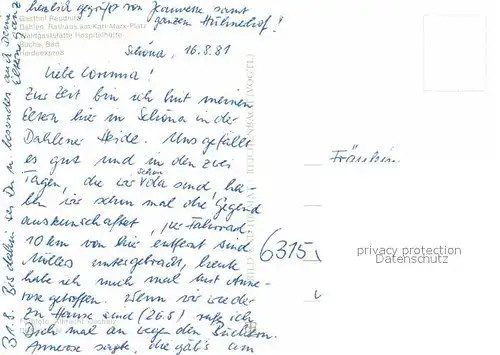 herzlich gegrüßt von Jeannette samt
ganzem Hühnerhof!
Gasthof Reudnitz
Dahlen, Rathaus am Karl-Marx-Platz
Waldgaststätte Hospitalhütte
Buche, Bad
Heideexpreß
Schöna, 16.8.81
Liebe Corinna!
Zur Zeit bin ich mit meinen
Eltern hier in Schöna in der
Dahlener Heide. Uns gefällt
es gut und in den zwei
Tagen, die wir schon da sind, ha-
ben wir schon mal die Gegend
auskundschaftet, per Fahrrad.
10 km von hier entfernt sind
Möllers untergebracht, heute
habe ich mich mal mit Anne-
rose getroffen. Wenn wir wieder
zu Hause sind (26.8) rufe ich
Dich mal an wegen den Büchern.
Annerose sagte, die gäb's am
31.8. Bis dahin sei Du u. besonders auch Deine
Eltern ganz
Fräulein
6315
privacy protection
Datenschutz